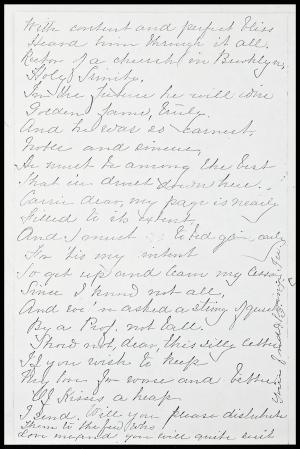 With content and perfect bliss
Heard him through it all.
Rector of a church in Brooklyn,
Holy Trinity.
In the future he will win
Golden fame, truly.
And he was so earnest,
Noble and sincere,
He must be among the best
That in dwell down here.
Carrie dear, my page is nearly
Filled to its extent,
And I must to bed go, early
For 'tis my intent
To get up and learn my lesson
Since I know not all,
And we're asked a string I guess
By a Prof. not tall.
Show not, dear, this silly letter
If you wish to keep
My love for worse and better
Of kisses a heap
I send. Will you please distribute
Them to the few who
love me and you will quite suit